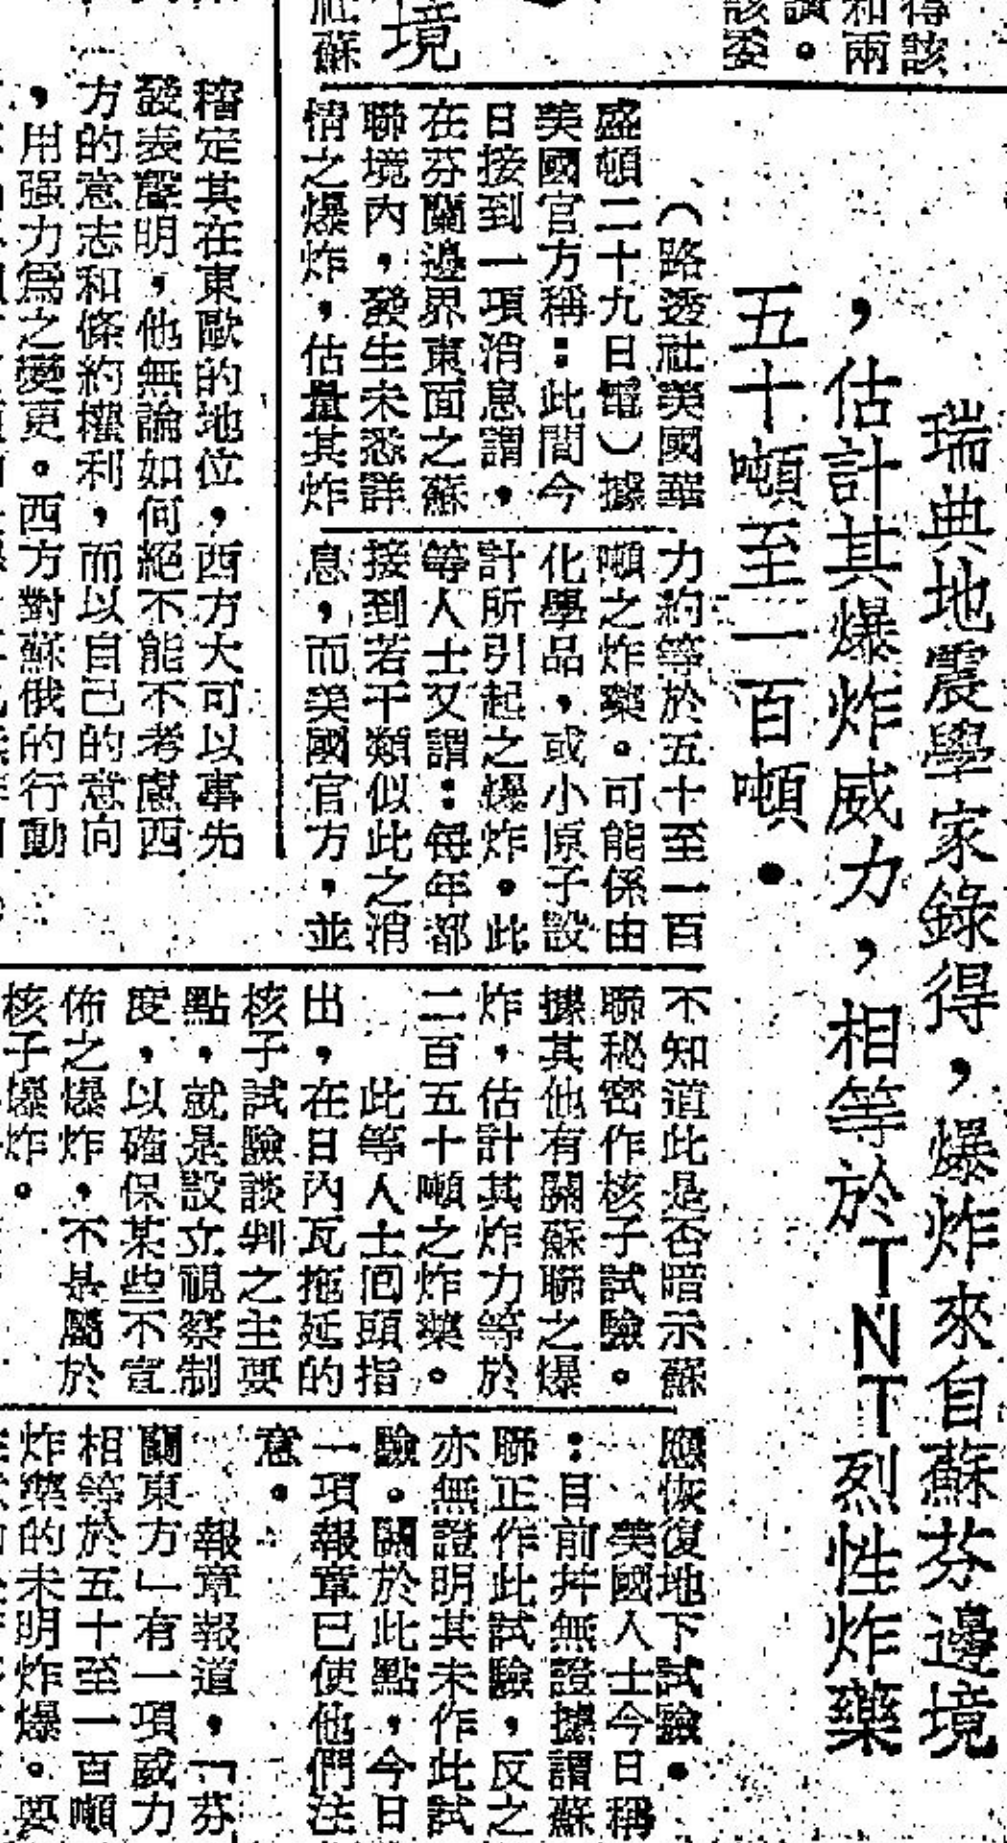 得該
和兩
。
該委
境
社蘇
瑞典地震學家錄得，爆炸來自蘇芬邊境
，估計其爆炸威力，相等於TNT烈性炸藥
五十噸至一百噸．
（路透社美國華
盛頓二十九日電）據
美國官方稱：此間今
日接到一項消息謂，
在芬蘭邊界東面之蘇
聯境內，發生未悉詳
情之爆炸，估量其炸
力約等於五十至一百
噸之炸藥。可能係由
化學品，或小原子設
計所引起之爆炸。此
等人士又謂：每年都
接到若干類似此之消
息，而美國官方，並
不知道此是否暗示蘇
聯秘密作核子試驗。
據其他有關蘇聯之爆
炸，估計其炸力等於
二百五十噸之炸藥。
此等人士回頭指
出，在日內瓦拖延的
核子試驗談判之主要
點，就是設立視察制
度，以確保某些不宣
佈之爆炸，不是屬於
核子爆炸。
應恢復地下試驗．
美國人士今日稱
：目前幷無證據謂蘇
聯正作此試驗，反之
亦無證明其未作此試
驗。關於此點，今日
一項報章已使他們注
意．
報章報道，「芬
蘭東方」有一項威力
相等於五十至一百噸
炸藥的未明炸爆。要
穩定其在東歐的地位，西方大可以事先
發表聲明，他無論如何絕不能不考慮西
方的意志和條約權利，而以自己的意向
，用强力爲之變更。西方對蘇俄的行動